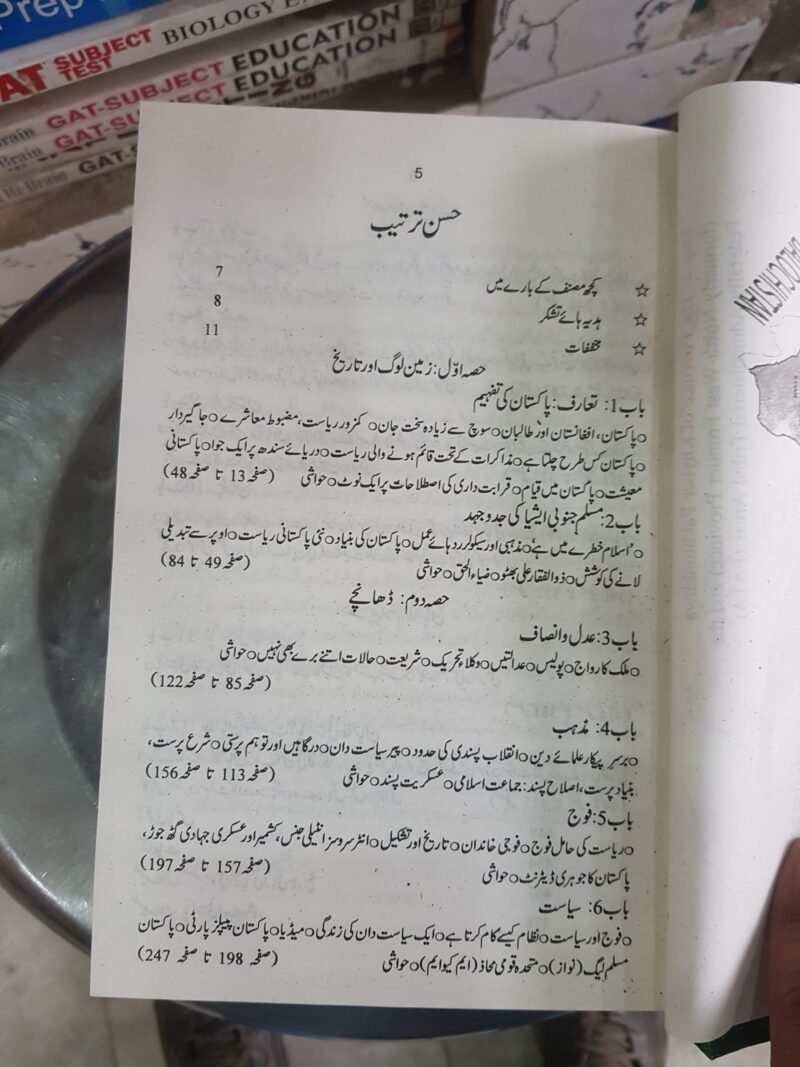 Prep
GAT SUBJECT TEST BIOLOGY
GAT-SUBJECT EDUCATION
Brain GAT-SUBJECT EDUCATION
Hi-Brain GAT-
5
حسن ترتیب
☆ کچھ مصنف کے بارے میں 7
☆ ہدیہ ہائے تشکر 8
☆ مخففات 11
حصہ اوّل: زمین لوگ اور تاریخ
باب 1: تعارف: پاکستان کی تفہیم
○پاکستان، افغانستان اور طالبان○سوچ سے زیادہ سخت جان○ کمزور ریاست، مضبوط معاشرے○ جاگیردار
○پاکستان کس طرح چلتا ہے○مذاکرات کے تحت قائم ہونے والی ریاست○دریائے سندھ پر ایک جوا○پاکستانی
معیشت○پاکستان میں قیام○ قرابت داری کی اصطلاحات پر ایک نوٹ○حواشی (صفحہ 13 تا صفحہ 48)
باب 2: مسلم جنوبی ایشیا کی جدوجہد
○'اسلام خطرے میں ہے'○مذہبی اور سیکولر ردہائے عمل○پاکستان کی بنیاد○نئی پاکستانی ریاست○اوپر سے تبدیلی
لانے کی کوشش○ذوالفقار علی بھٹو○ضیاء الحق○حواشی (صفحہ 49 تا صفحہ 84)
حصہ دوم: ڈھانچے
باب 3: عدل و انصاف
○ملک کا رواج○پولیس○عدالتیں○وکلاء تحریک○شریعت○حالات اتنے برے بھی نہیں○حواشی
(صفحہ 85 تا صفحہ 122)
باب 4: مذہب
○برسرِ پیکار علمائے دین○انقلاب پسندی کی حدود○پیر سیاست دان○درگاہیں اور توہم پرستی○شرع پرست،
بنیاد پرست، اصلاح پسند: جماعت اسلامی○عسکریت پسند○حواشی (صفحہ 113 تا صفحہ 156)
باب 5: فوج
○ریاست کی حامل فوج○فوجی خاندان○تاریخ اور تشکیل○انٹر سروسز انٹیلی جنس، کشمیر اور عسکری جہادی گٹھ جوڑ،
پاکستان کا جوہری ڈیٹرنٹ○حواشی (صفحہ 157 تا صفحہ 197)
باب 6: سیاست
○فوج اور سیاست○نظام کیسے کام کرتا ہے○ایک سیاست دان کی زندگی○میڈیا○پاکستان پیپلز پارٹی○پاکستان
مسلم لیگ (نواز)○متحدہ قومی محاذ (ایم کیو ایم)○حواشی (صفحہ 198 تا صفحہ 247)
BALOCHISTAN